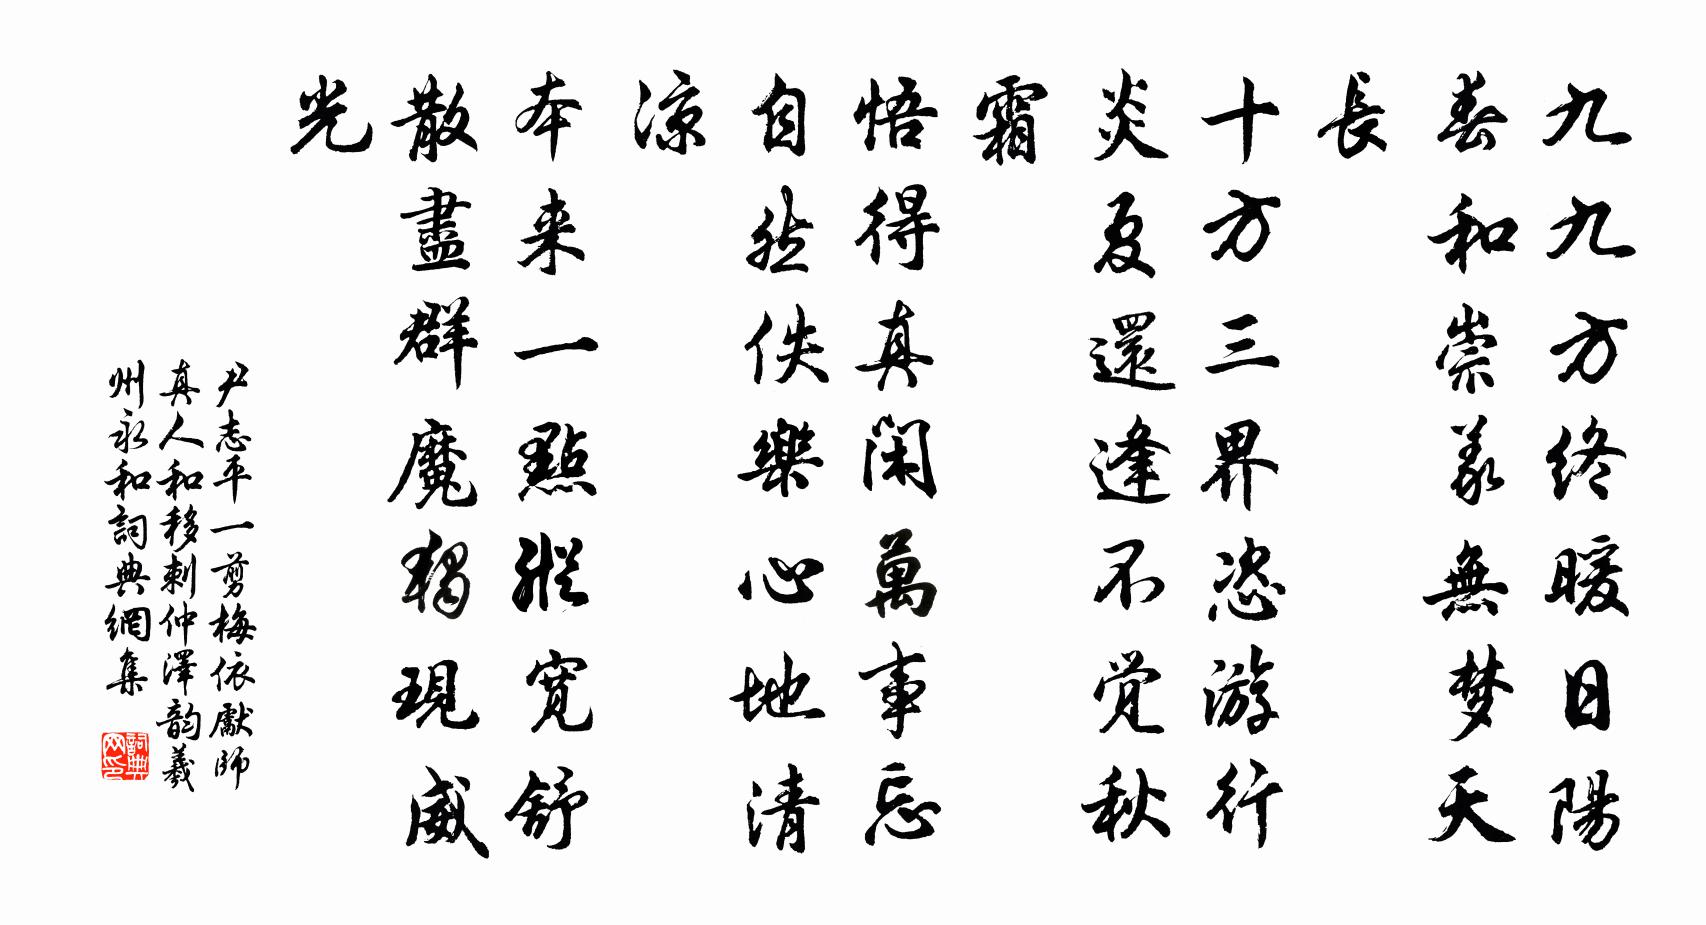 九九方终暖日陽
春和崇義無梦天
長
十方三界恣游行
炎夏還逢不觉秋
霜
悟得真闲萬事忘
自然佚樂心地清
凉
本来一點縱宽舒
散盡群魔獨現威
光
尹志平一剪梅依獻師
真人和移剌仲澤韵羲
州永和詞典網集
詞典网印